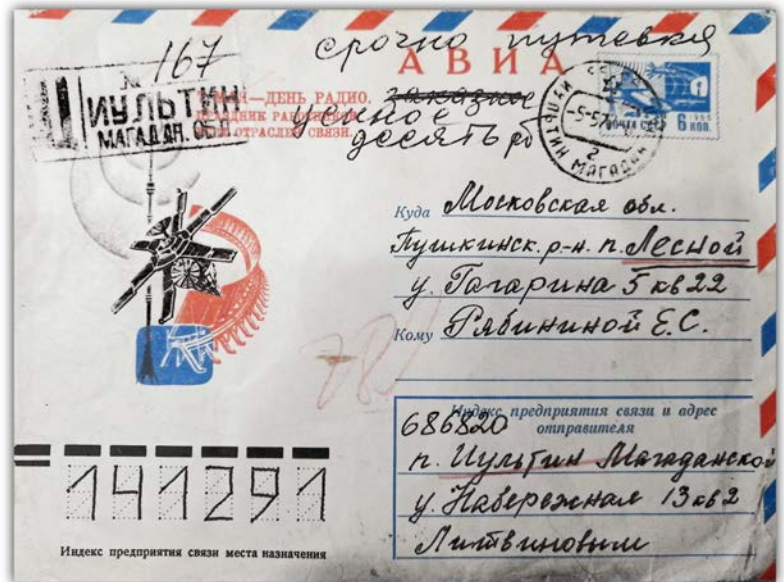 срочно путевка
№ 167
АВИА
ИУЛЬТИН
МАГАДАН. ОБЛ
—ДЕНЬ РАДИО,
заказное
ПРАЗДНИК РАБОТНИКОВ
ОТРАСЛЕЙ СВЯЗИ.
ценное
десять рб
ПОЧТА СССР
1966
6 КОП.
ИУЛЬТИН МАГАДАН
2
Куда Московская обл.
Пушкинск. р-н. п. Лесной
у. Гагарина 5 кв 22
Кому Рябининой Е.С.
78
Индекс предприятия связи и адрес
отправителя
686820
п. Иультин Магаданской
у. Набережная 13 кв 2
Литвиновым
141291
Индекс предприятия связи места назначения